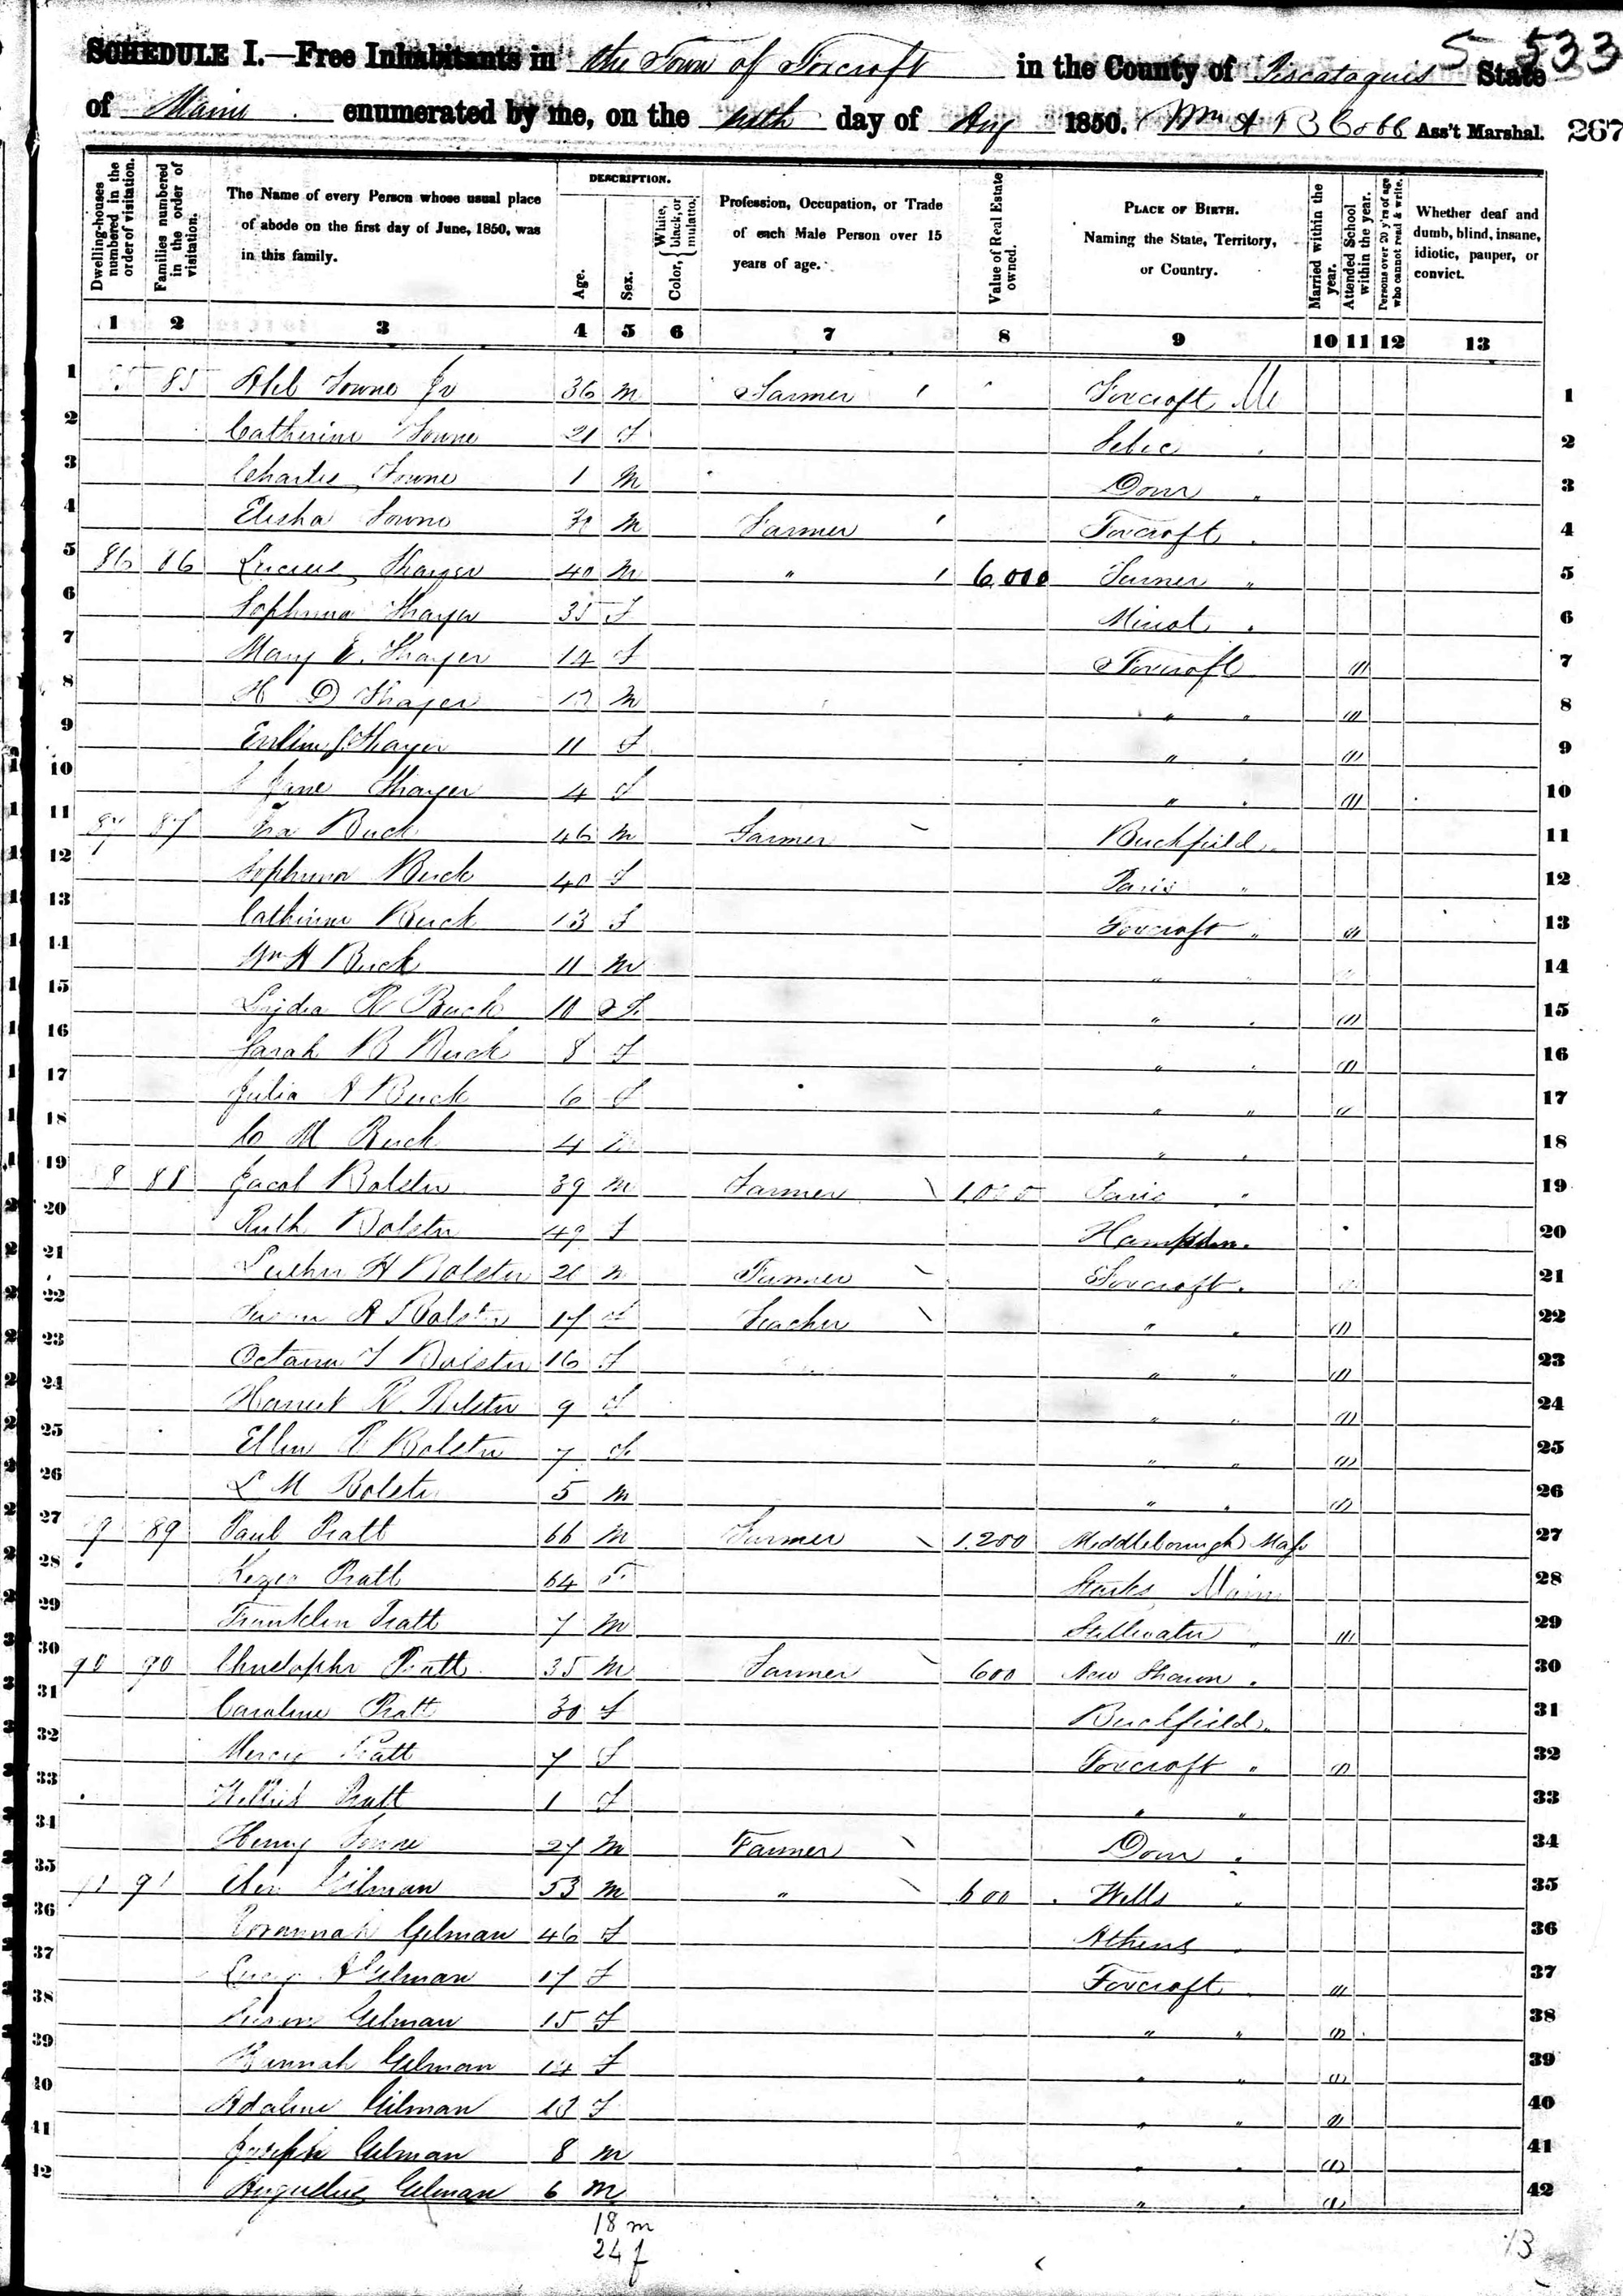 5 533
SCHEDULE I.—Free Inhabitants in the Town of Foxcroft in the County of Piscataquis State
of Maine enumerated by me, on the day of Aug 1850. Wm Cobb Ass't Marshal. 267
Dwelling-houses numbered in the order of visitation.
Families numbered in the order of visitation.
The Name of every Person whose usual place of abode on the first day of June, 1850, was in this family.
DESCRIPTION.
Age.
Sex.
Color, { White, black, or mulatto.
Profession, Occupation, or Trade of each Male Person over 15 years of age.
Value of Real Estate owned.
PLACE OF BIRTH. Naming the State, Territory, or Country.
Married within the year.
Attended School within the year.
Persons over 20 y'rs of age who cannot read & write.
Whether deaf and dumb, blind, insane, idiotic, pauper, or convict.
1 2 3 4 5 6 7 8 9 10 11 12 13
1 85 Towne Jr 36 M Farmer Foxcroft Me 1
2 Catherine Towne 21 F Sebec 2
3 Charles Towne 1 M Dover " 3
4 Elisha Towne M Farmer Foxcroft 4
5 86 86 Thayer 40 M " 6,000 Turner " 5
6 Thayer 35 F Minot 6
7 Mary E. Thayer 14 F Foxcroft 1 7
8 H D Thayer M " " 1 8
9 Thayer 11 F " " 1 9
10 Jane Thayer 4 F " " 1 10
11 87 87 Ira Buck 46 M Farmer Buckfield " 11
12 Buck 40 F Paris " 12
13 Catherine Buck 13 F Foxcroft " 1 13
14 Wm A Buck 11 M " " 14
15 Lydia R Buck 10 F " " 1 15
16 Sarah B Buck 8 F " " 1 16
17 Julia A Buck 6 F " " 1 17
18 M Buck 4 " " 18
19 8 88 Jacob Bolster 39 M Farmer 1,000 Paris " 19
20 Ruth Bolster 49 F Hampden 20
21 Luther H Bolster M Farmer Foxcroft 21
22 A Bolster 17 F Teacher " " 1 22
23 Bolster 16 F " " 1 23
24 Harriet R Bolster 9 F " " 1 24
25 Ellen Bolster 7 F " " 1 25
26 L M Bolster 5 M " " 1 26
27 9 89 Paul Pratt 66 M Farmer 1,200 Middleborough Mass 27
28 Pratt 64 F Starks Maine 28
29 Franklin Pratt 7 M Stillwater " 1 29
30 90 90 Christopher Pratt 35 M Farmer 600 New Sharon 30
31 Caroline Pratt 30 F Buckfield " 31
32 Mercy Pratt 7 F Foxcroft " 1 32
33 Pratt 1 F " " 33
34 Henry Towne 27 M Farmer Dover 34
35 91 Gilman 53 M " 600 Wells " 35
36 Gilman 46 F Athens 36
37 Lucy A Gilman 17 F Foxcroft 1 37
38 Susan Gilman 15 F " " 1 38
39 Hannah Gilman 14 F " " 1 39
40 Adaline Gilman 13 F " " 1 40
41 Joseph Gilman 8 M " " 1 41
42 Augustus Gilman 6 M " " 1 42
18 m
24 f
13